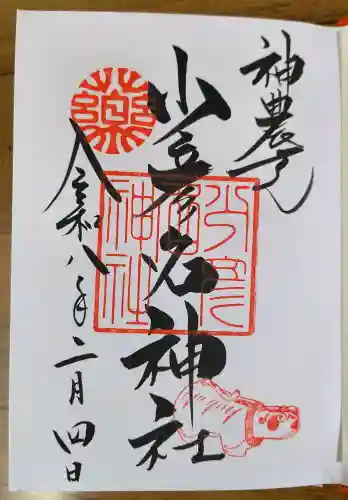 神農さん
少彦名神社
令和八年二月四日
薬
少彦名神社